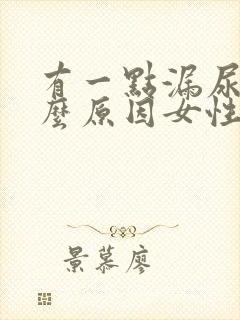 有一點漏尿
麼原因女性
景慕廖